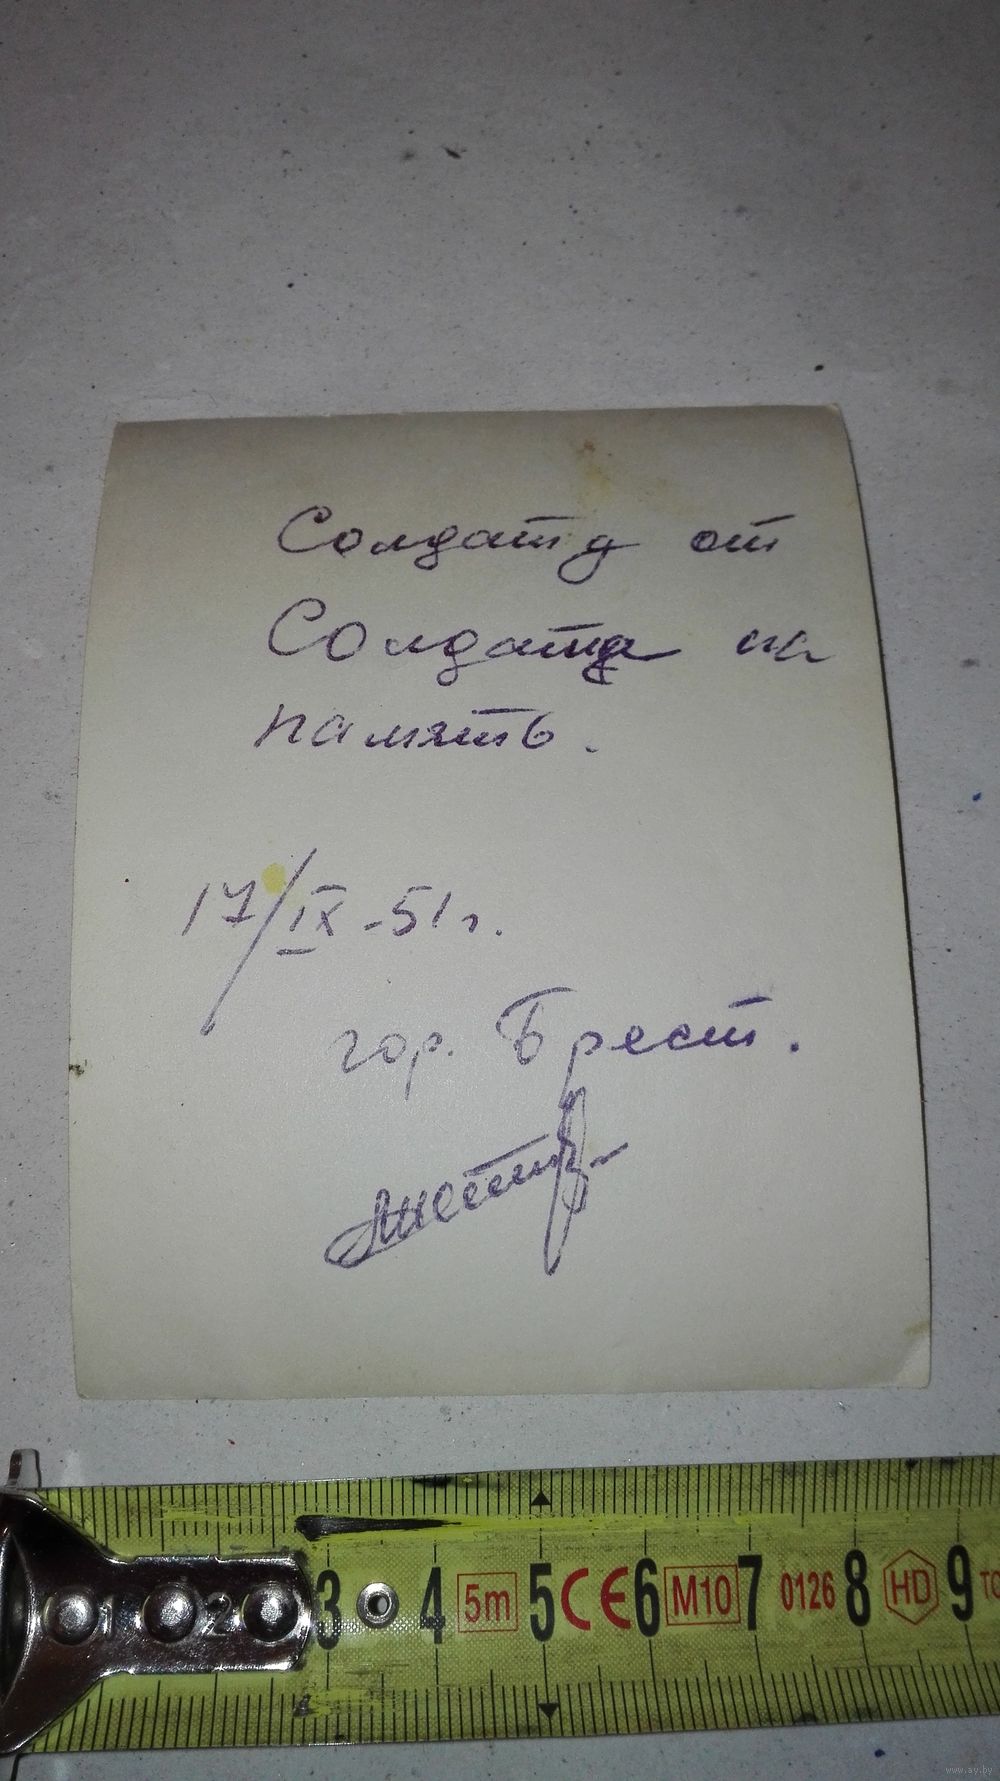 Солдату от
Солдата на
память.
17/IX-51г.
гор. Брест.
1 2 3 4 5m 5 CE 6 M10 7 0126 8 HD 9
www.ay.by